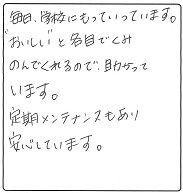 毎日、学校にもっていっています。
"おいしい"と各自でくみ
のんでくれるので、助かって
います。
定期メンテナンスもあり
安心しています。